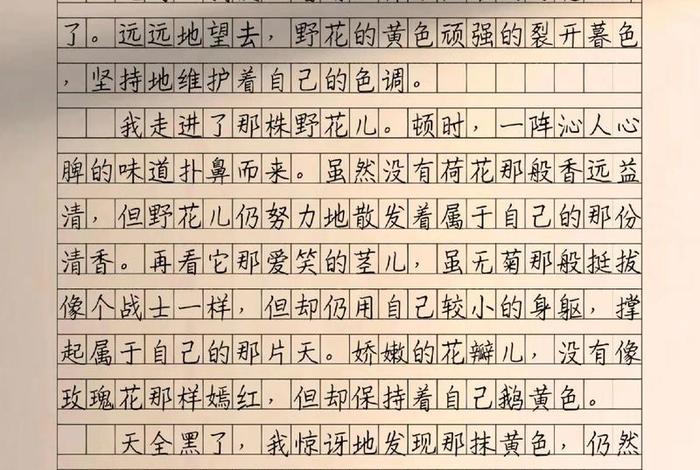 了。远远地望去，野花的黄色顽强的裂开暮色
，坚持地维护着自己的色调。
我走进了那株野花儿。顿时，一阵沁人心
脾的味道扑鼻而来。虽然没有荷花那般香远益
清，但野花儿仍努力地散发着属于自己的那份
清香。再看它那爱笑的茎儿，虽无菊那般挺拔
像个战士一样，但却仍用自己较小的身躯，撑
起属于自己的那片天。娇嫩的花瓣儿，没有像
玫瑰花那样嫣红，但却保持着自己鹅黄色。
天全黑了，我惊讶地发现那抹黄色，仍然